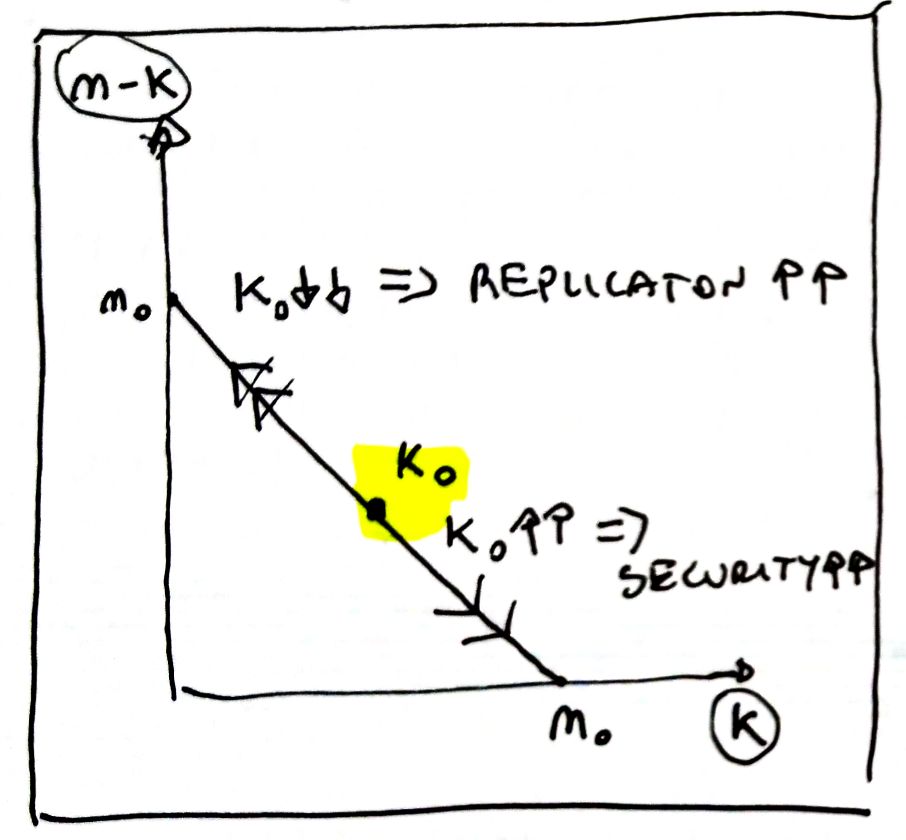 m-K
m₀ K₀↓↓ => REPLICATON ↑↑
K₀
K₀↑↑ =>
SECURITY↑↑
m₀
K